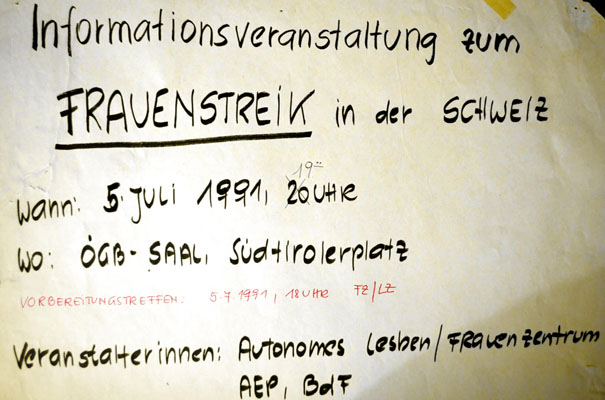 Informationsveranstaltung zum
FRAUENSTREIK in der SCHWEIZ
19⁰⁰
wann: 5. Juli 1991, 20 UHR
wo: ÖGB-SAAL, Südtirolerplatz
VORBEREITUNGSTREFFEN: 5.7.1991, 18 UHR FZ/LZ
Veranstalterinnen: Autonomes Lesben/FRAUENZENTRUM
AEP, BdF